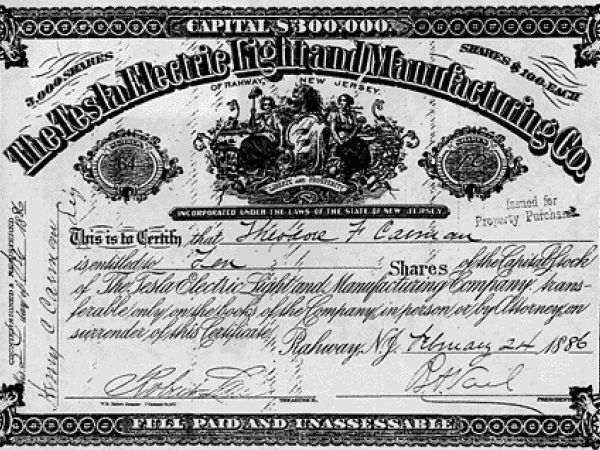 CAPITAL $300,000.
3,000 SHARES
SHARES $100 EACH
The Tesla Electric Light and Manufacturing Co.
OF RAHWAY, NEW JERSEY.
NUMBER
SHARES
10
LIBERTY AND PROSPERITY
INCORPORATED UNDER THE LAWS OF THE STATE OF NEW JERSEY
Issued for
Property Purchased
This is to Certify that Theodore F Carman
is entitled to Ten Shares of the Capital Stock
of The Tesla Electric Light and Manufacturing Company, trans-
ferable only on the books of the Company, in person or by Attorney, on
surrender of this Certificate.
Rahway N.J. February 24 1886
TREASURER.
PRESIDENT
FULL PAID AND UNASSESSABLE
day of 1886